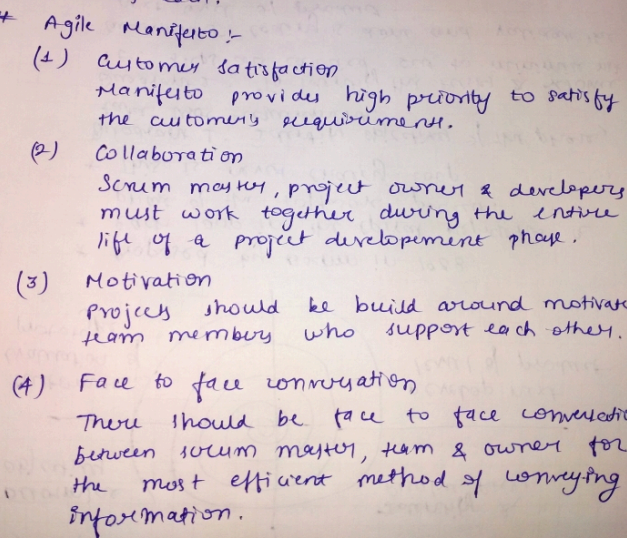 * Agile Manifesto :-
(1) Customer satisfaction
Manifesto provides high priority to satisfy
the customer's requirements.
(2) Collaboration
Scrum master, project owner & developers
must work together during the entire
life of a project developement phase.
(3) Motivation
Projects should be build around motivate
team members who support each other.
(4) Face to face conversation
There should be face to face conversatio
between scrum master, team & owner for
the most efficient method of conveying
information.